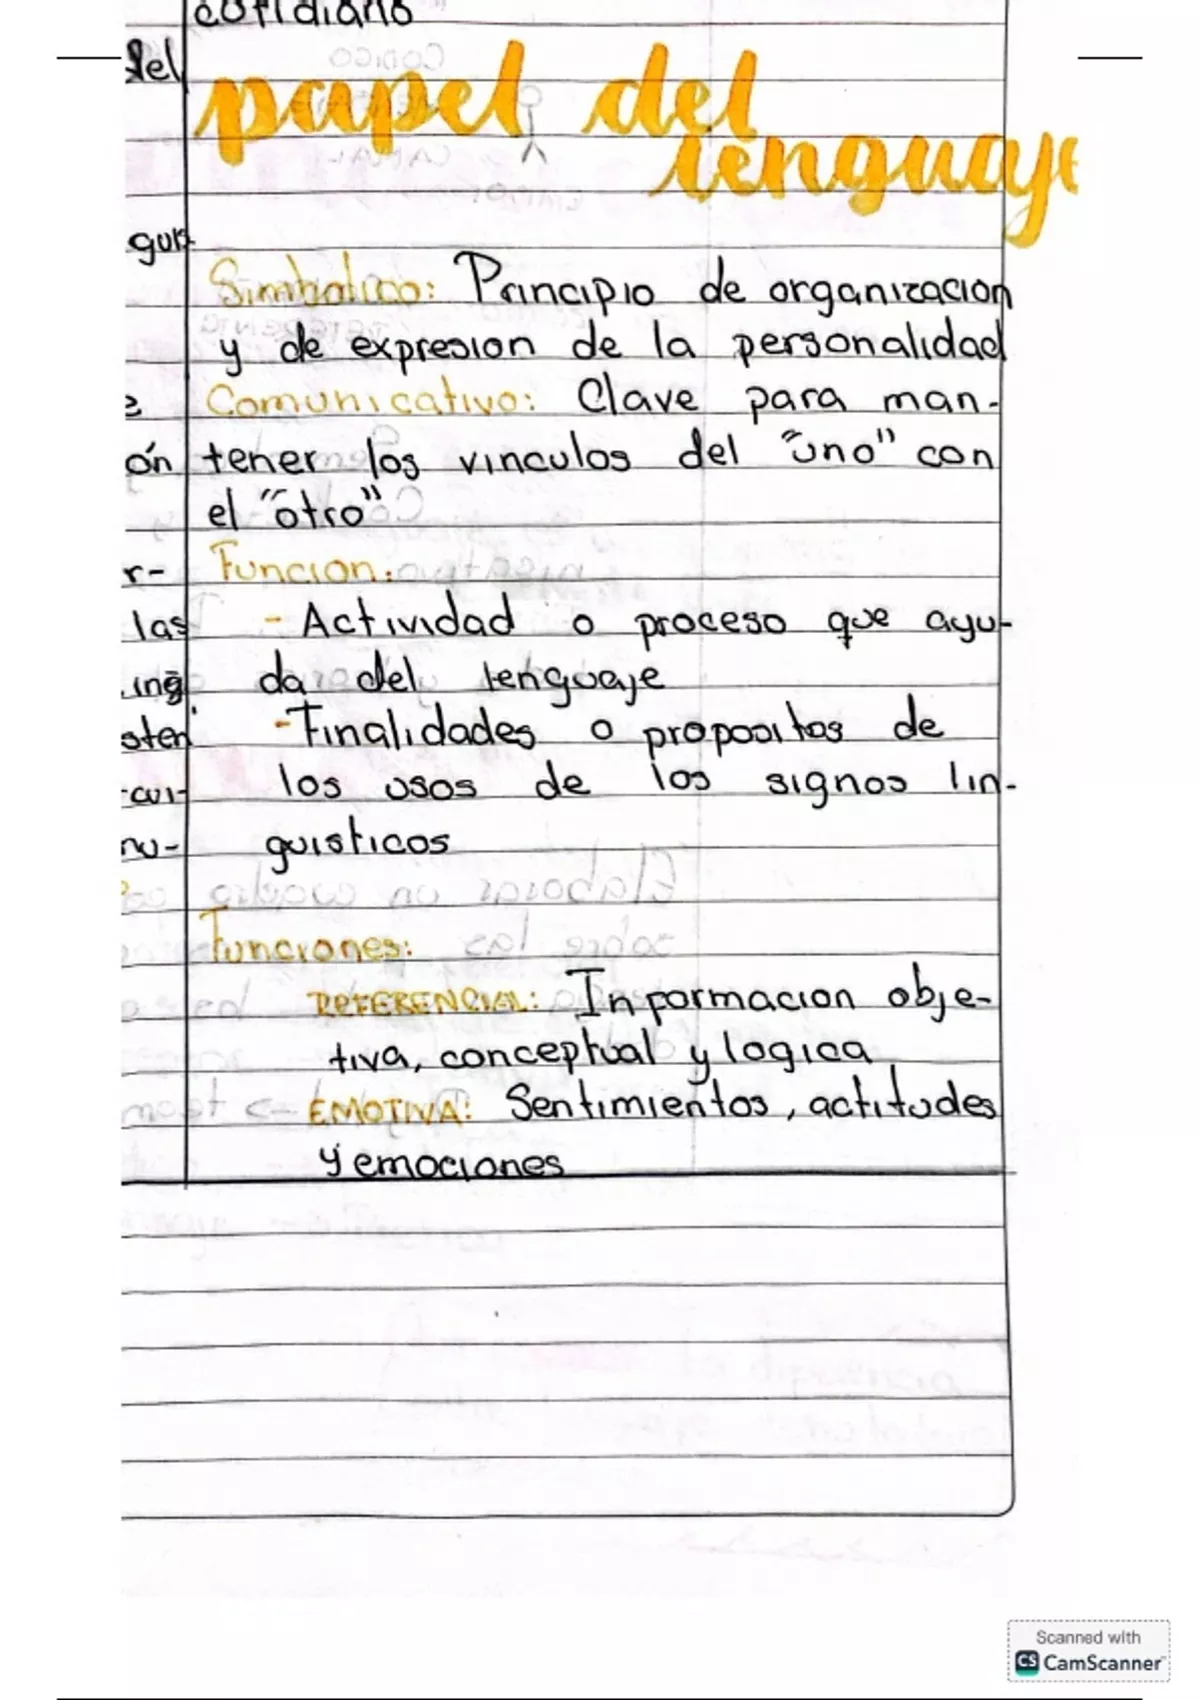 cotidiano
del
papel del
lenguaje
guis
Simbolico: Principio de organizacion
y de expresion de la personalidad
Comunicativo: Clave para man-
ón tener los vinculos del "uno" con
el "otro"
r- Funcion:
las - Actividad o proceso que ayu-
ing da del lenguaje
sten -Finalidades o propositos de
cui- los usos de los signos lin-
nu- guisticos
Funciones:
REFERENCIAL: Informacion obje-
tiva, conceptual y logica
EMOTIVA: Sentimientos, actitudes
y emociones
Scanned with
CS CamScanner